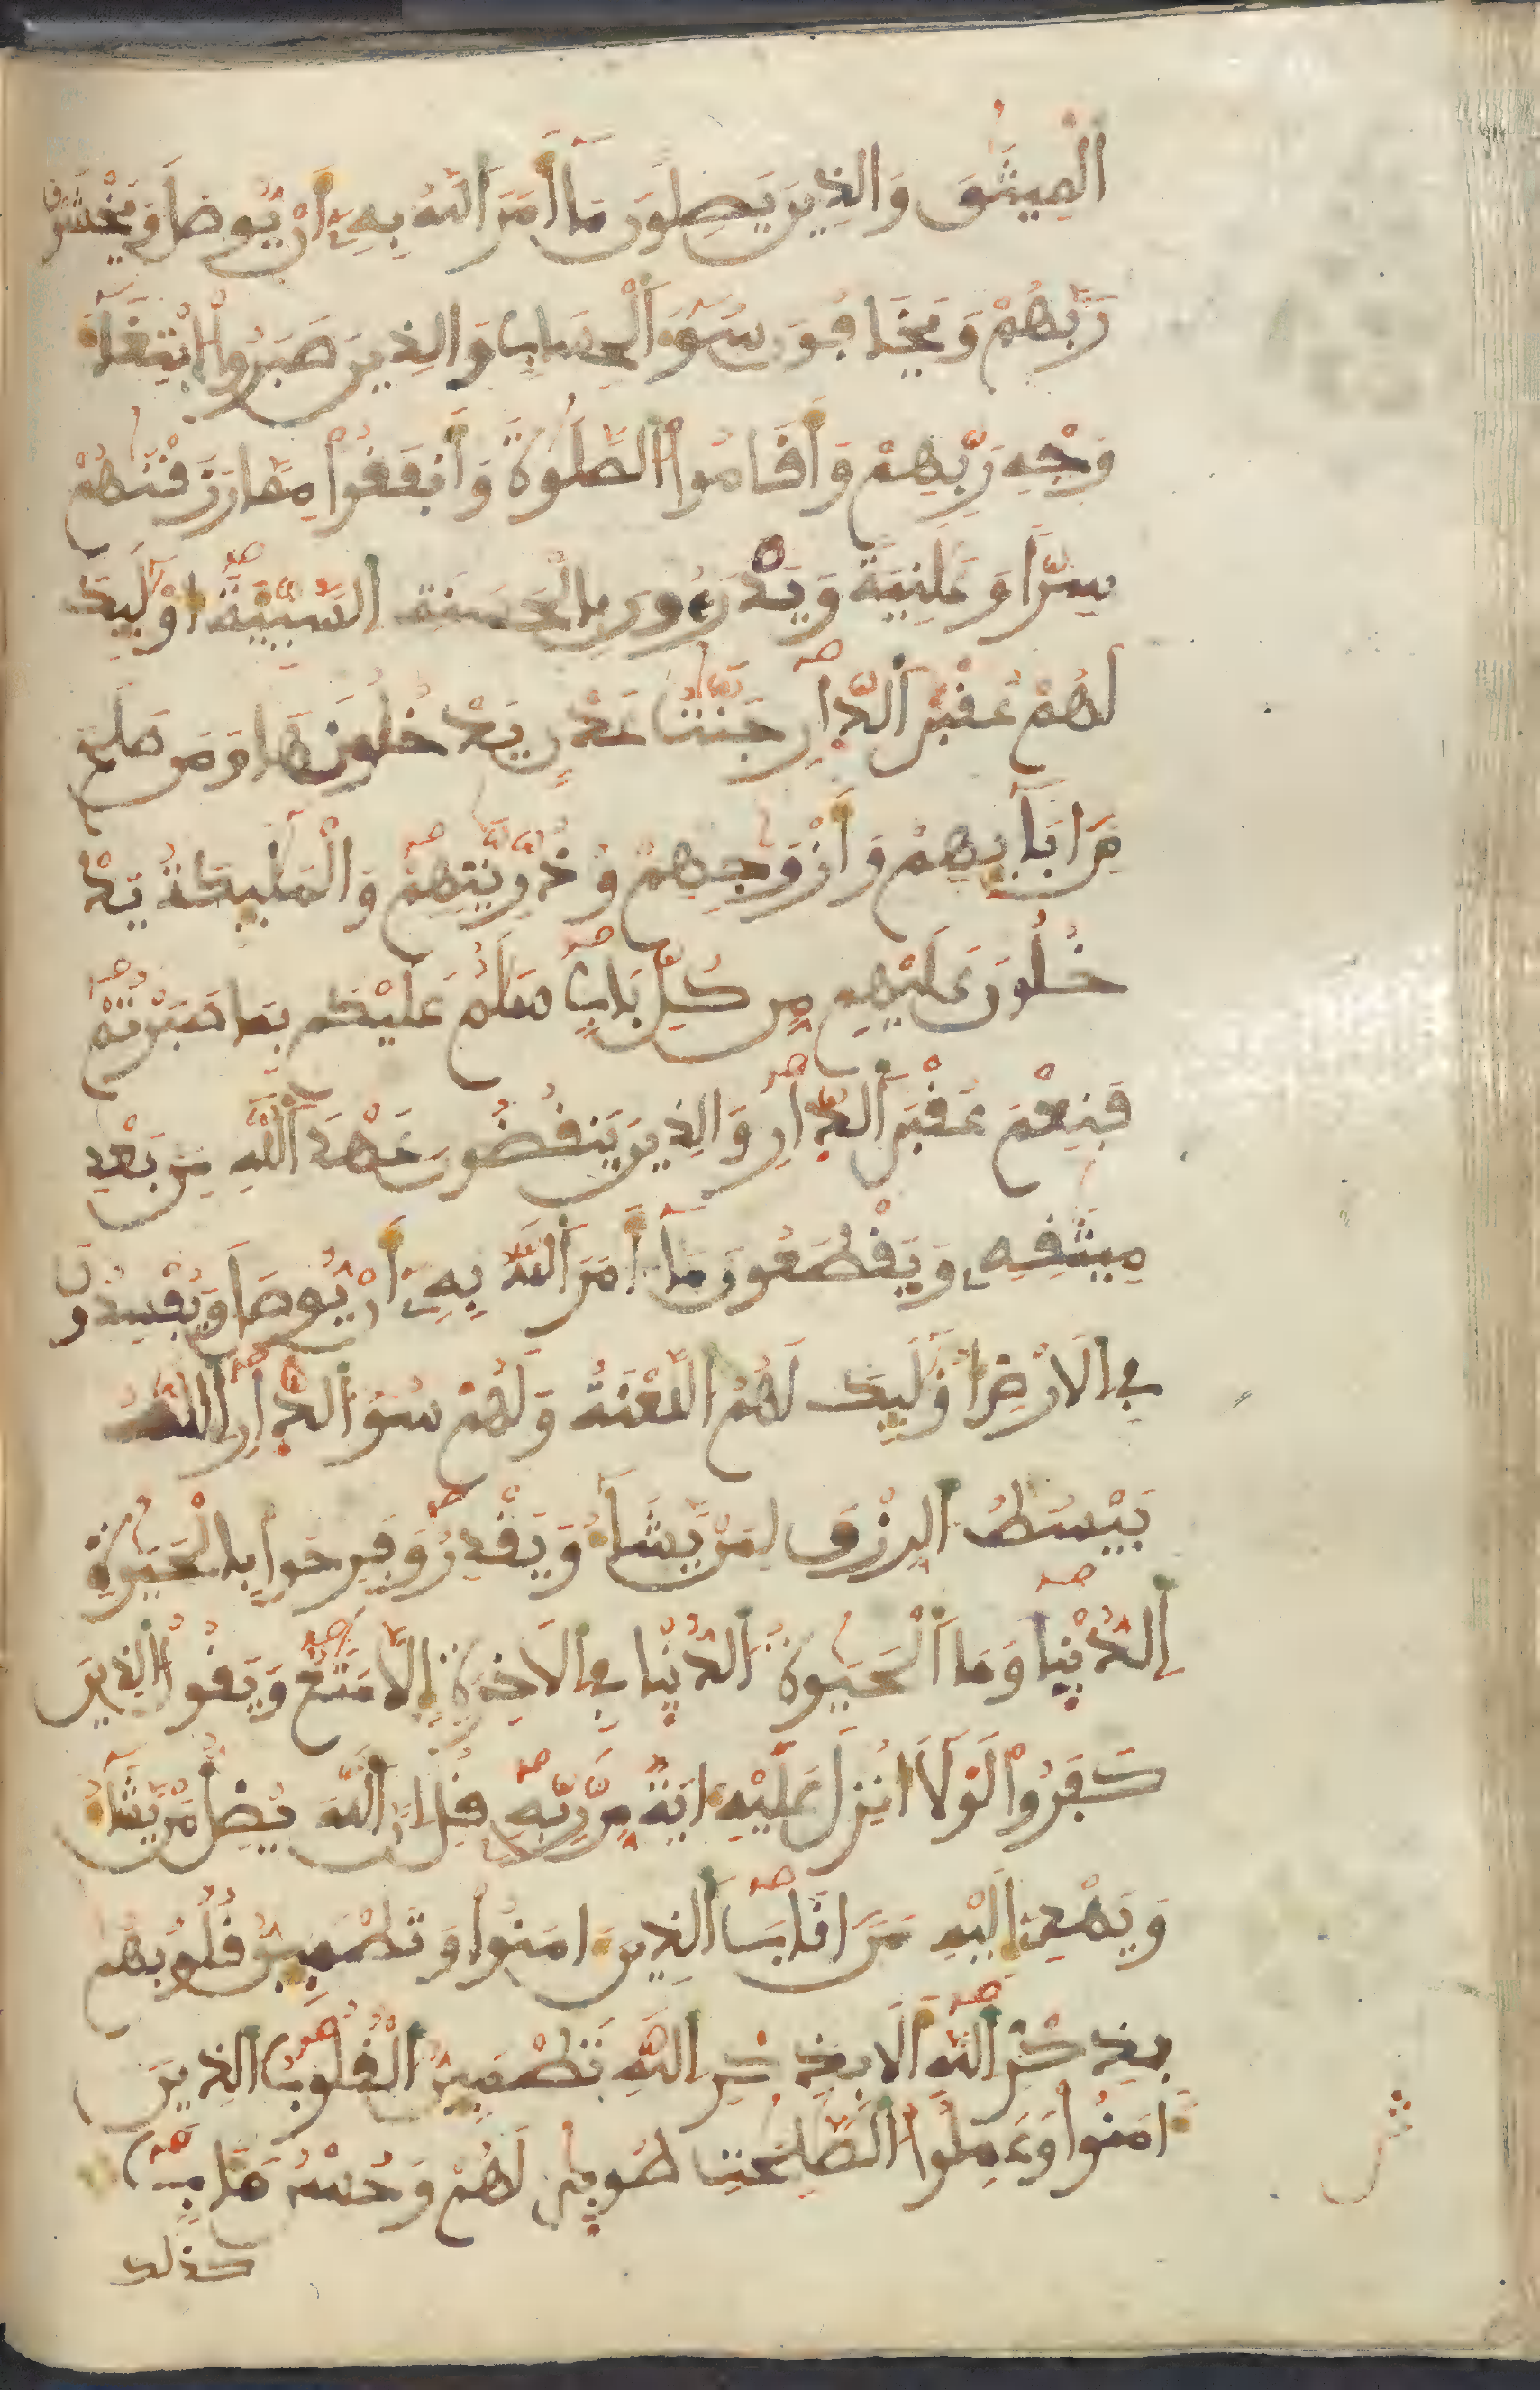 الْمِيثَٰقَ وَالذِينَ يَصِلُونَ مَآ أَمَرَ اَللَّهُ بِهِۦٓ أَنْ يُّوصَلَ وَيَخْشَوْنَ
رَبَّهُمْ وَيَخَافُونَ سُوٓءَ اَلْحِسَابِ وَالذِينَ صَبَرُواْ اُبْتِغَآءَ
وَجْهِ رَبِّهِمْ وَأَقَامُواْ اُلصَّلَوٰةَ وَأَنفَقُواْ مِمَّا رَزَقْنَٰهُمْ
سِرّاً وَعَلَٰنِيَةً وَيَدْرَءُونَ بِالْحَسَنَةِ اِلسَّيِّئَةَ أُوْلَٰٓئِكَ
لَهُمْ عُقْبَى اَلدّ۪ارِ جَنَّٰتُ عَدْنٍ يَدْخُلُونَهَا وَمَن صَلَحَ
مِنَ اٰبَآئِهِمْ وَأَزْوَٰجِهِمْ وَذُرِّيَّٰتِهِمْ وَالْمَلَٰٓئِكَةُ يَدْ
خُلُونَ عَلَيْهِم مِّن كُلِّ بَابٍ سَلَٰمٌ عَلَيْكُم بِمَا صَبَرْتُمْ
فَنِعْمَ عُقْبَى اَلدّ۪ارِ وَالذِينَ يَنقُضُونَ عَهْدَ اَللَّهِ مِنۢ بَعْدِ
مِيثَٰقِهِۦ وَيَقْطَعُونَ مَآ أَمَرَ اَللَّهُ بِهِۦٓ أَنْ يُّوصَلَ وَيُفْسِدُونَ
فِى اِلَارْضِ أُوْلَٰٓئِكَ لَهُمُ اُللَّعْنَةُ وَلَهُمْ سُوٓءُ اُلدّ۪ارِ اِللَّهُ
يَبْسُطُ اُلرِّزْقَ لِمَنْ يَّشَآءُ وَيَقْدِرُ وَفَرِحُواْ بِالْحَيَوٰةِ
اِلدُّنْي۪ا وَمَا اَلْحَيَوٰةُ اُلدُّنْي۪ا فِى اِلَاخِرَةِ إِلَّا مَتَٰعٌ وَيَقُولُ اُلذِينَ
كَفَرُواْ لَوْلَآ أُنزِلَ عَلَيْهِ ءَايَةٌ مِّن رَّبِّهِۦ قُلِ انَّ اَللَّهَ يُضِلُّ مَنْ يَّشَآءُ
وَيَهْدِىٓ إِلَيْهِ مَنَ اَنَابَ اَلذِينَ ءَامَنُواْ وَتَطْمَئِنُّ قُلُوبُهُم
بِذِكْرِ اِللَّهِ أَلَا بِذِكْرِ اِللَّهِ تَطْمَئِنُّ اُلْقُلُوبُ اُلذِينَ
ءَامَنُواْ وَعَمِلُواْ اُلصَّٰلِحَٰتِ طُوب۪ىٰ لَهُمْ وَحُسْنُ مَـَٔابٍ
كذلك